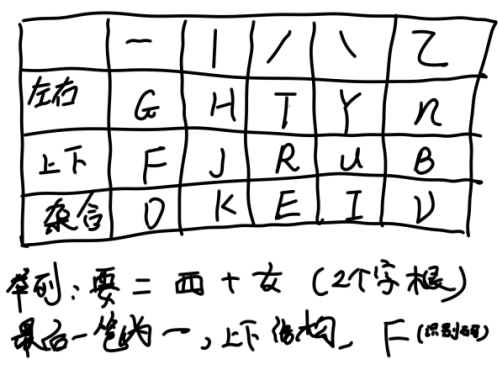 一 丨 丿 丶 乙
左右 G H T Y N
上下 F J R U B
杂合 D K E I V
举列：要 = 西 + 女（2个字根）
最后一笔为一，上下结构，F（识别码）